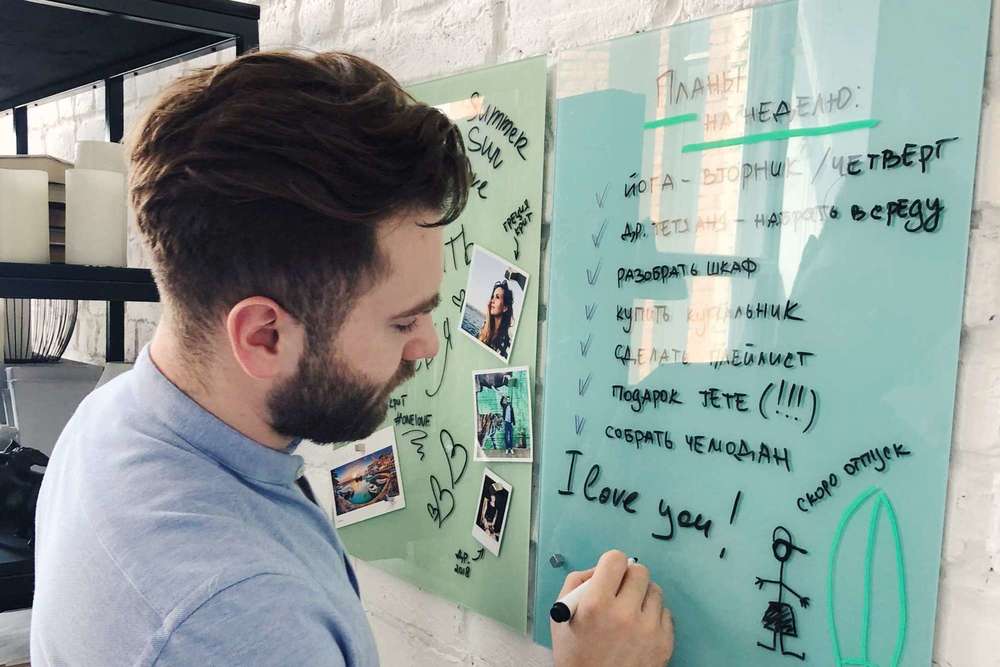 Summer
Sun
ГРЕЦИЯ
КРИТ
КРИТ
#ONELOVE
Д.Р.
2018
ПЛАНЫ
НА НЕДЕЛЮ:
ЙОГА - ВТОРНИК / ЧЕТВЕРГ
Д.Р. ТЕТ - НАБРАТЬ В СРЕДУ
РАЗОБРАТЬ ШКАФ
КУПИТЬ КУПАЛЬНИК
СДЕЛАТЬ ПЛЕЙЛИСТ
ПОДАРОК ТЕТЕ (!!!)
СОБРАТЬ ЧЕМОДАН
I love you!
СКОРО ОТПУСК